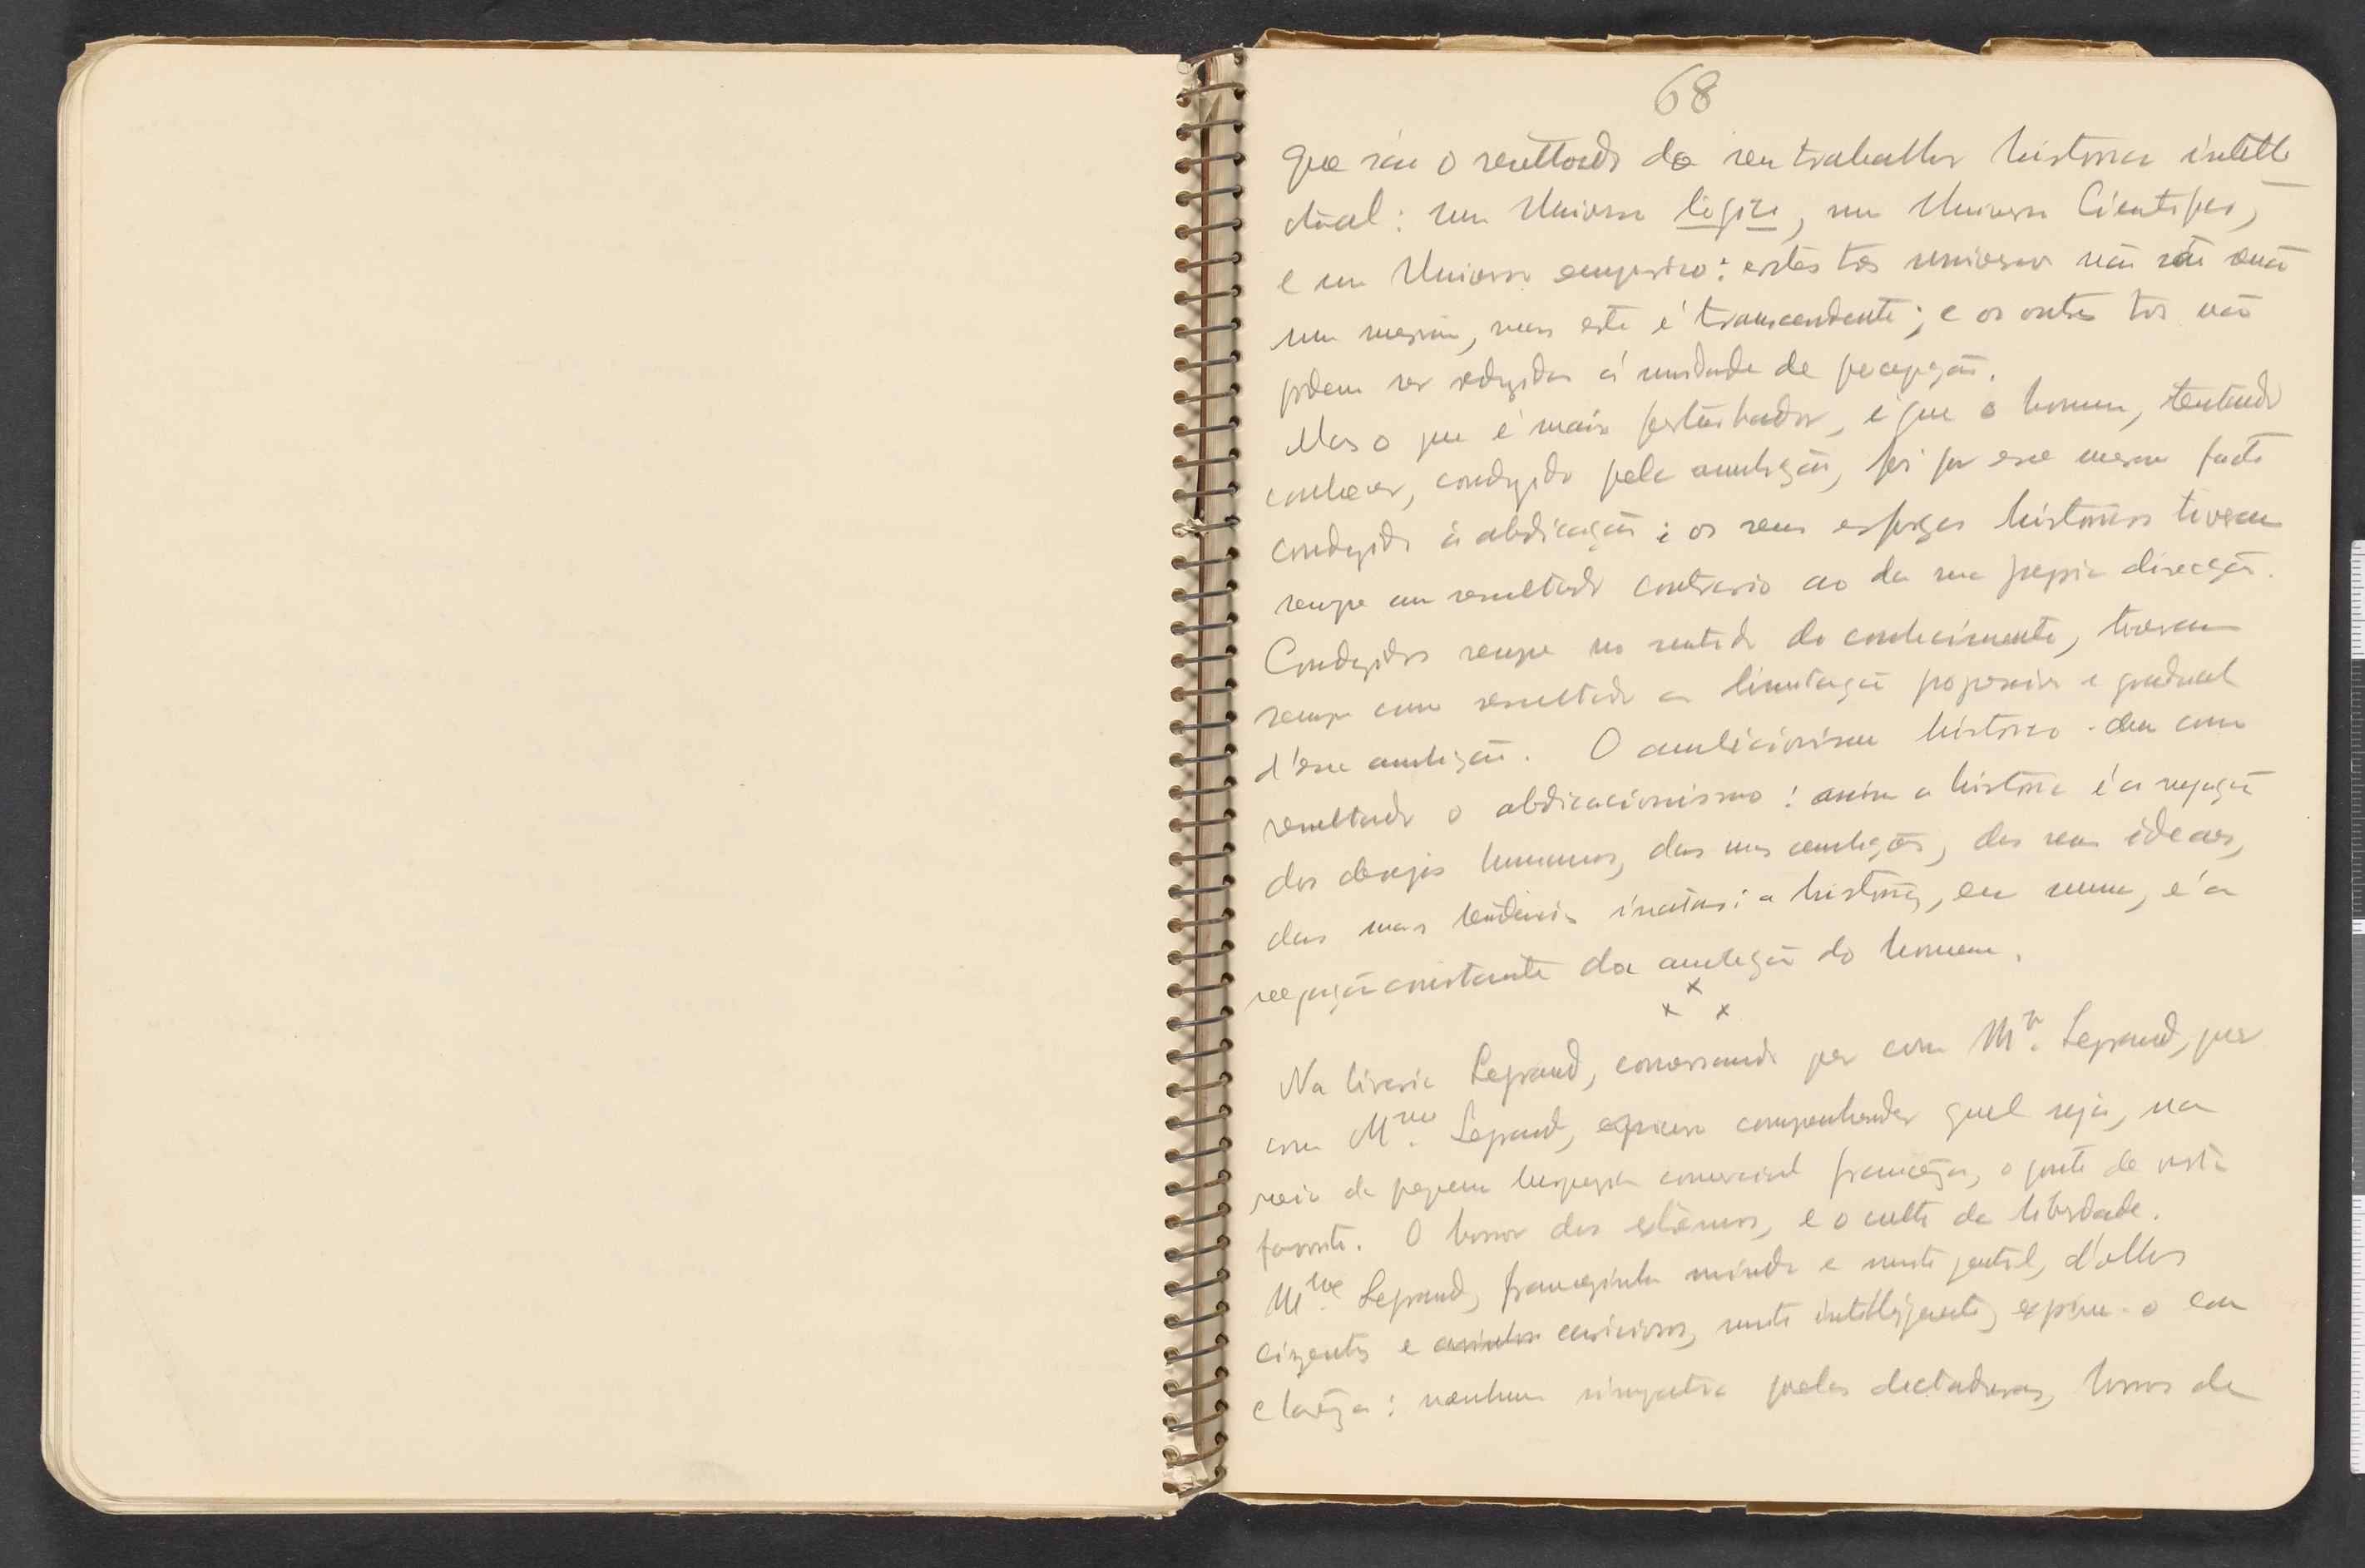 68
que são o resultado do seu trabalho historico intelle
ctual: um Universo logico, um Universo Cientifico,
e um Universo empirico: estes tres universos não são senão
um mesmo, mas este é transcendente; e os outros tres não
podem ser reduzidos á unidade de percepção.
Mas o que é mais perturbador, é que o homem, tentando
conhecer, conduzido pela ambição, foi por esse mesmo facto
conduzido á abdicação; os seus esforços historicos tiveram
sempre um resultado contrario ao da sua propria direcção.
Conduzidos sempre no sentido do conhecimento, tiveram
sempre como resultado a limitação progressiva e gradual
d'essa ambição. O ambicionismo historico deu como
resultado o abdicacionismo: assim a historia é a negação
dos desejos humanos, das suas ambições, dos seus ideaes,
das suas tendencias inatas: a historia, em suma, é a
negação constante da ambição do homem.
x
x x
Na livraria Legrand, conversando quer com Mr. Legrand, quer
com Mme. Legrand, procuro comprehender qual seja, na
meia da pequena burguezia comercial franceza, o ponto de vista
favorito. O horror dos extremos, e o culto da liberdade.
Mme. Legrand, francezinha miuda e muito gentil, d'olhos
cinzentos e cariciosos, muito intelligente, exprime-o com
clareza: nenhuma simpatia pelas dictaduras, horror da